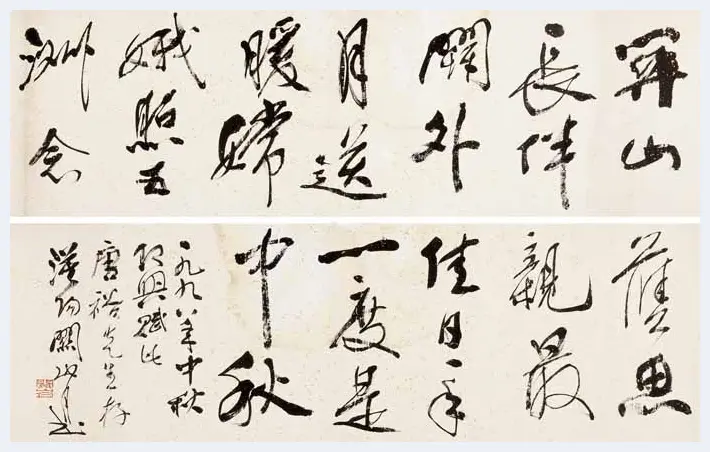 山
長伴
關外
月送
暖嫦
娥照五
洲念
舊思
親最
佳日年
一度是
中秋
一九九八年中秋
即興賦此
唐裕先生存
漠陽關山月書